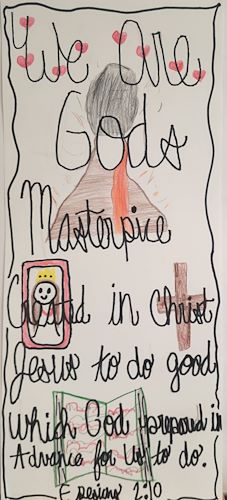 We Are
Gods
Masterpice
Created in Christ
Jesus to do good
which God Prepared in
Advance for Us to do.
Epesians 2:10